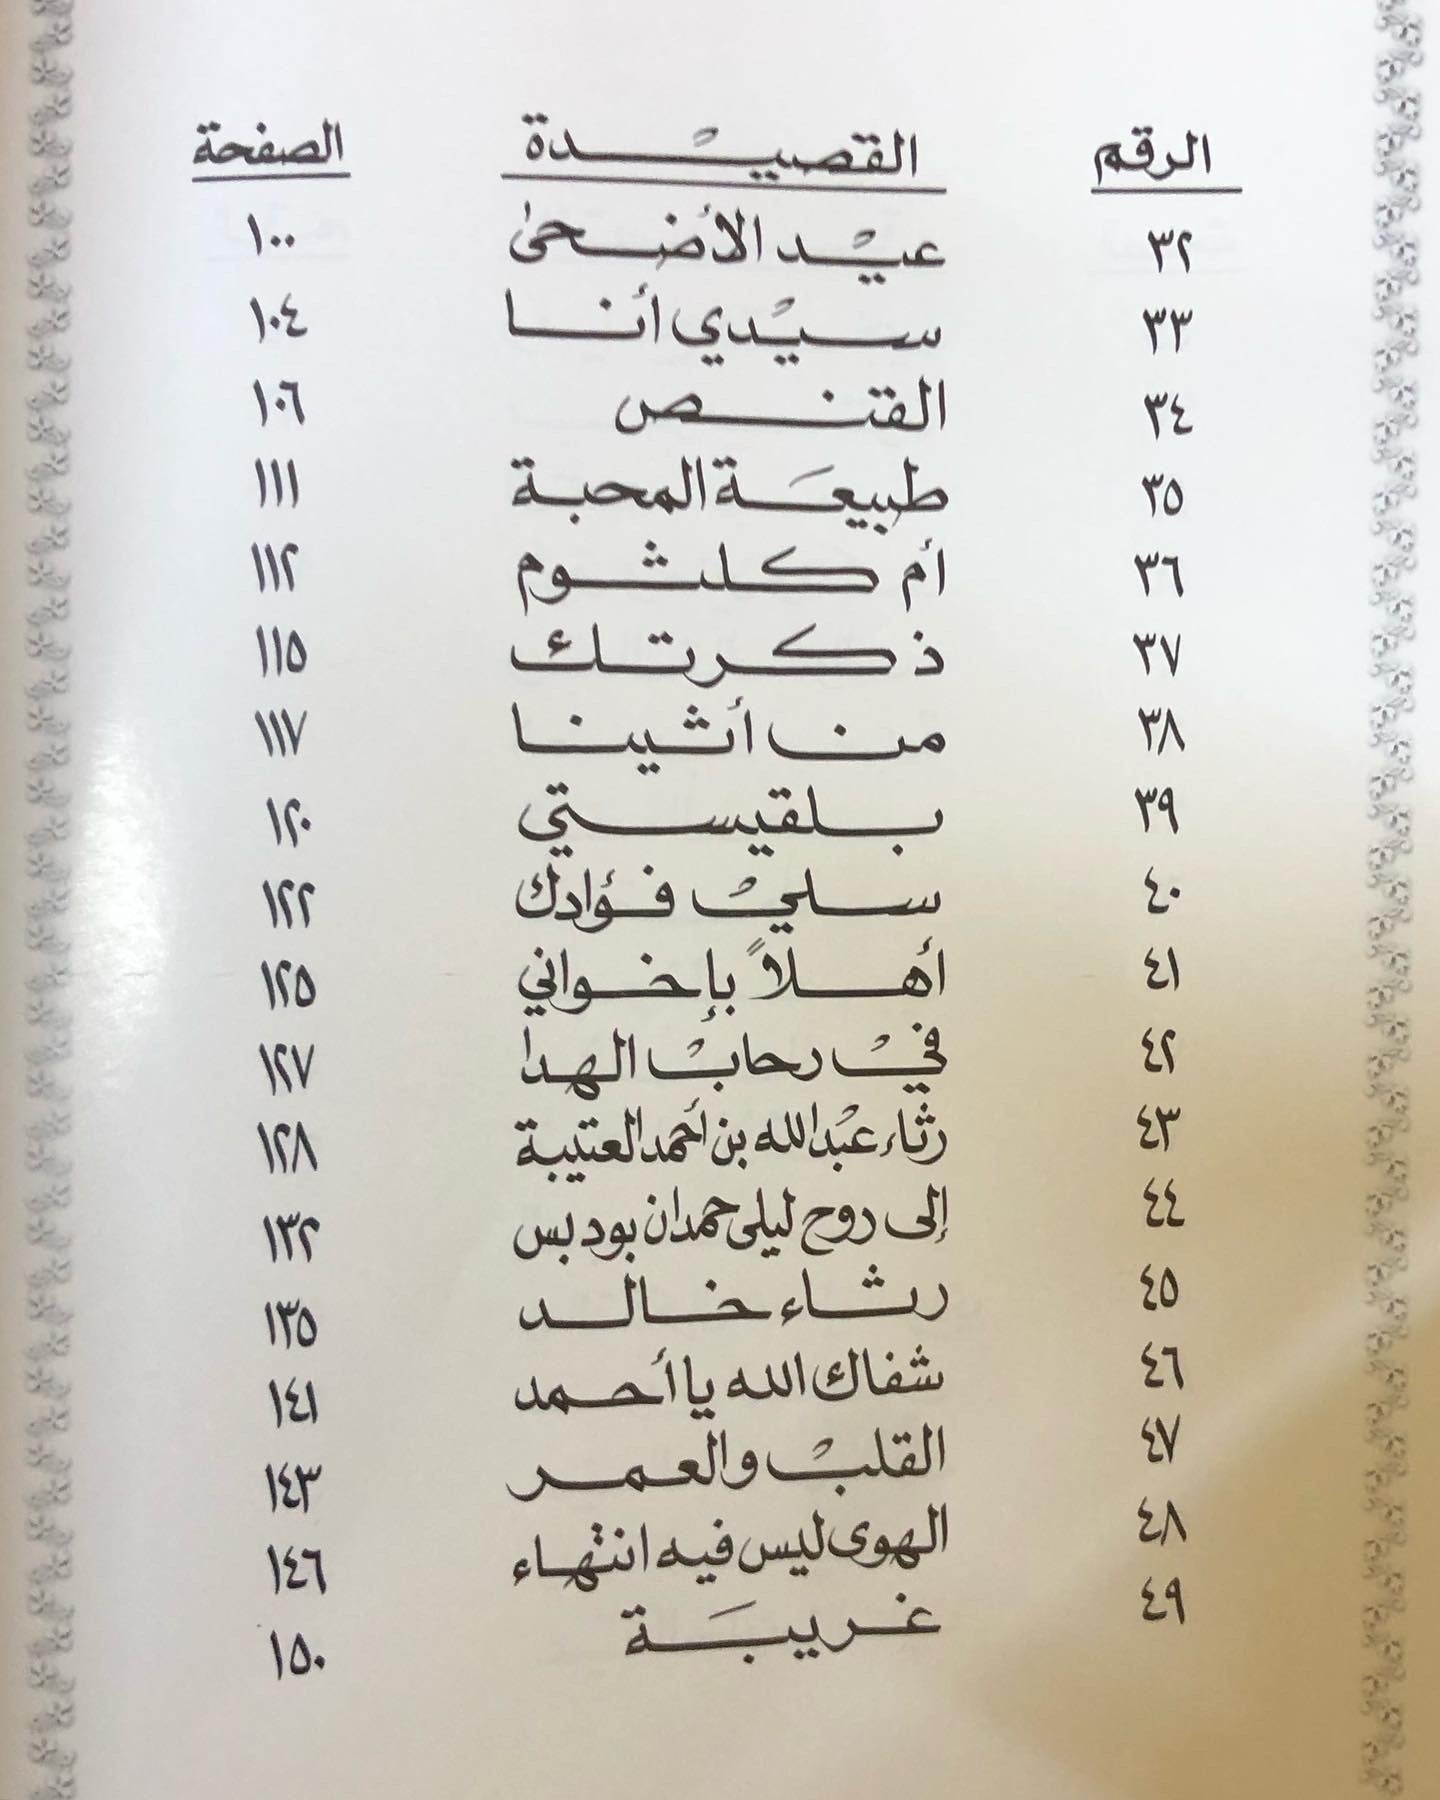 الرقم القصيدة الصفحة
٣٢ عيْد الأضحى ١٠٠
٣٣ سيْدي أنا ١٠٤
٣٤ القنص ١٠٦
٣٥ طبيعَة المحبة ١١١
٣٦ أم كلثوم ١١٢
٣٧ ذكرتك ١١٥
٣٨ من أثينا ١١٧
٣٩ بلقيستي ١٢٠
٤٠ سليْ فؤادك ١٢٢
٤١ أهلاً بإخواني ١٢٥
٤٢ فيْ رحابْ الهدا ١٢٧
٤٣ رثاء عبْدالله بن أحمد العتيبة ١٢٨
٤٤ إلى روح ليلى حمدان بودبس ١٣٢
٤٥ رثاء خالد ١٣٥
٤٦ شفاك الله يا أحمد ١٤١
٤٧ القلبْ والعمر ١٤٣
٤٨ الهوى ليس فيه انتهاء ١٤٦
٤٩ غريبَة ١٥٠